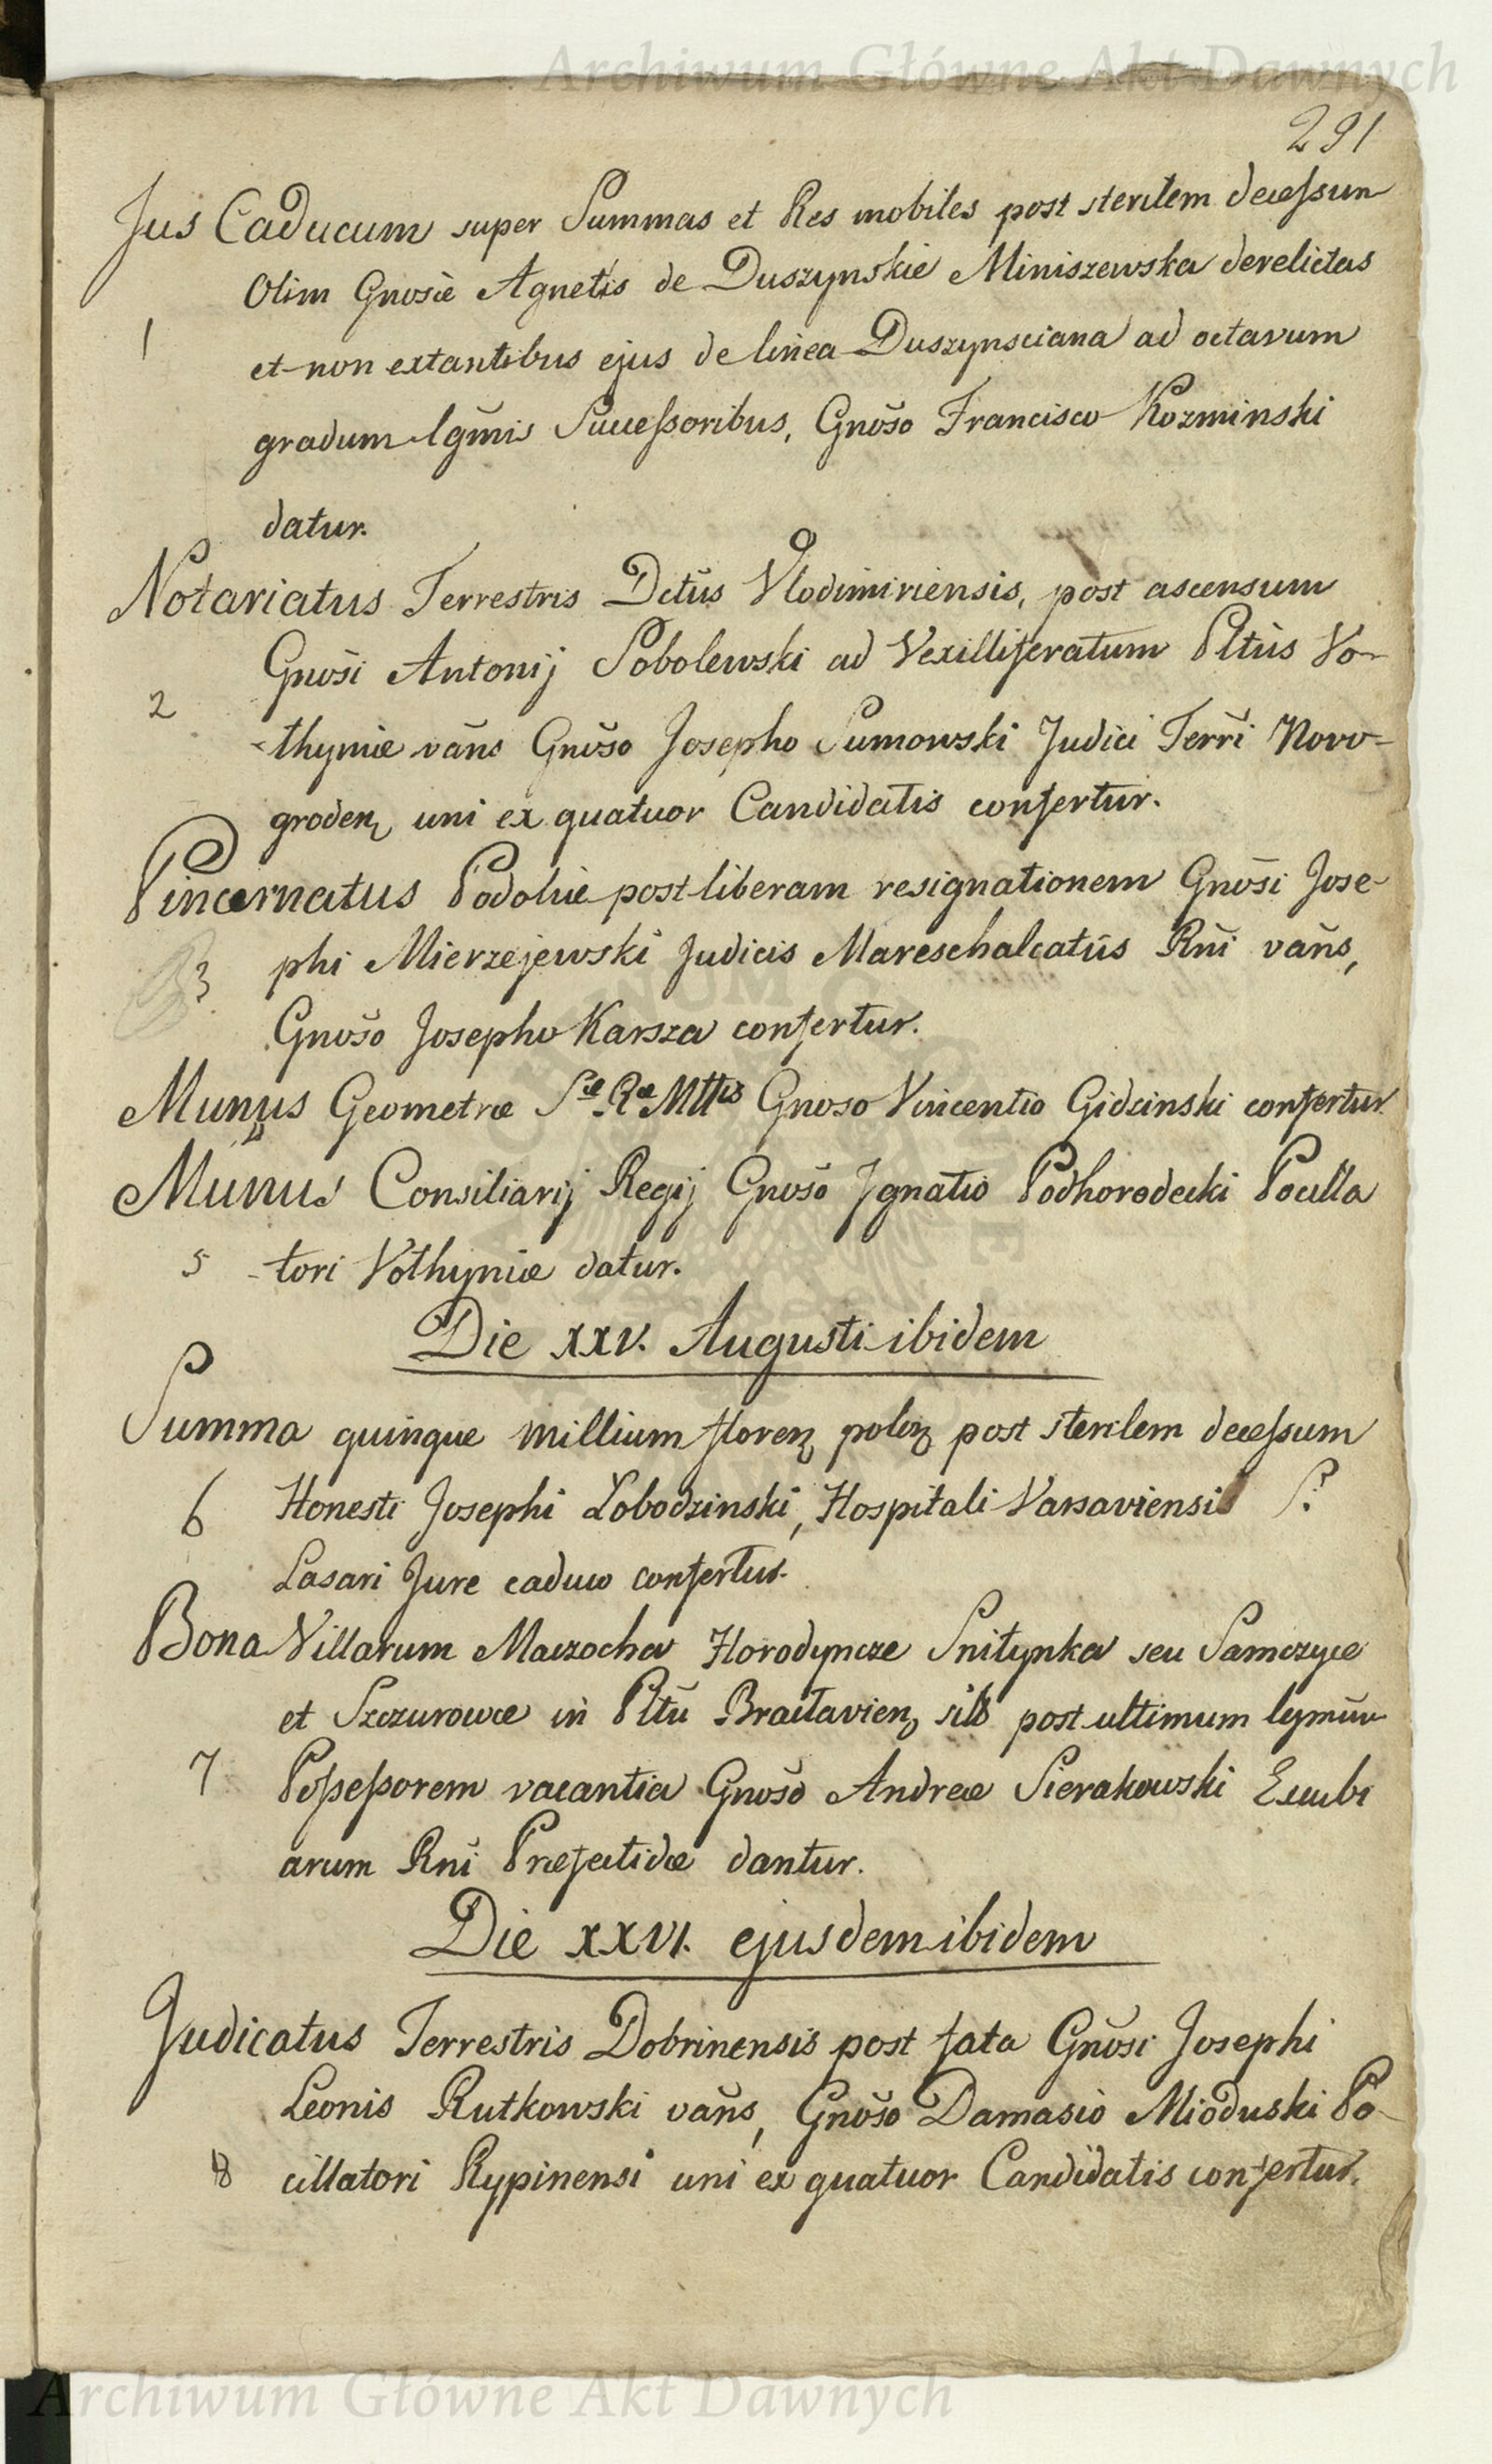 Archiwum Główne Akt Dawnych
291
Jus Caducum super Summas et Res mobiles post sterilem decessum
Olim Gnosæ Agnetis de Duszynskie Miniszewska derelictas
1 et non extantibus ejus de linea Duszynsciana ad octavum
gradum lgmis Successoribus, Gnoso Francisco Kozminski
datur.
Notariatus Terrestris Dctus Vlodimiriensis, post ascensum
Gnosi Antonij Sobolewski ad Vexilliferatum Pltus Vo-
2 -lhyniæ vans Gnoso Josepho Sumowski Judici Terri Novo-
groden, uni ex quatuor Candidatis confertur.
Pincernatus Podoliæ post liberam resignationem Gnosi Jose-
3 phi Mierzejewski Judicis Mareschalcatus Rni vans,
Gnoso Josepho Karsza confertur.
Munus Geometræ Sæ Ræ Mttis Gnoso Vincentio Gidzinski confertur
Munus Consiliarij Regij Gnoso Ignatio Podhorodecki Pocilla
5 -tori Volhyniæ datur.
Die XXV. Augusti ibidem
Summa quinque millium floren polon post sterilem decessum
6 Honesti Josephi Łobodzinski, Hospitali Varsaviensi S.
Lasari Jure caduco confertur.
Bona Villarum Maczocha Horodyncze Snitynka seu Samczyce
et Szczurowce in Pltu Bracłavien, sita post ultimum lgmum
7 Possessorem vacantia Gnoso Andreæ Sierakowski Excubi
arum Rni Præfectidæ dantur.
Die XXVI. ejusdem ibidem
Judicatus Terrestris Dobrinensis post fata Gnosi Josephi
Leonis Rutkowski vans, Gnoso Damasio Mioduski Po-
8 cillatori Rypinensi uni ex quatuor Candidatis confertur.
Archiwum Główne Akt Dawnych